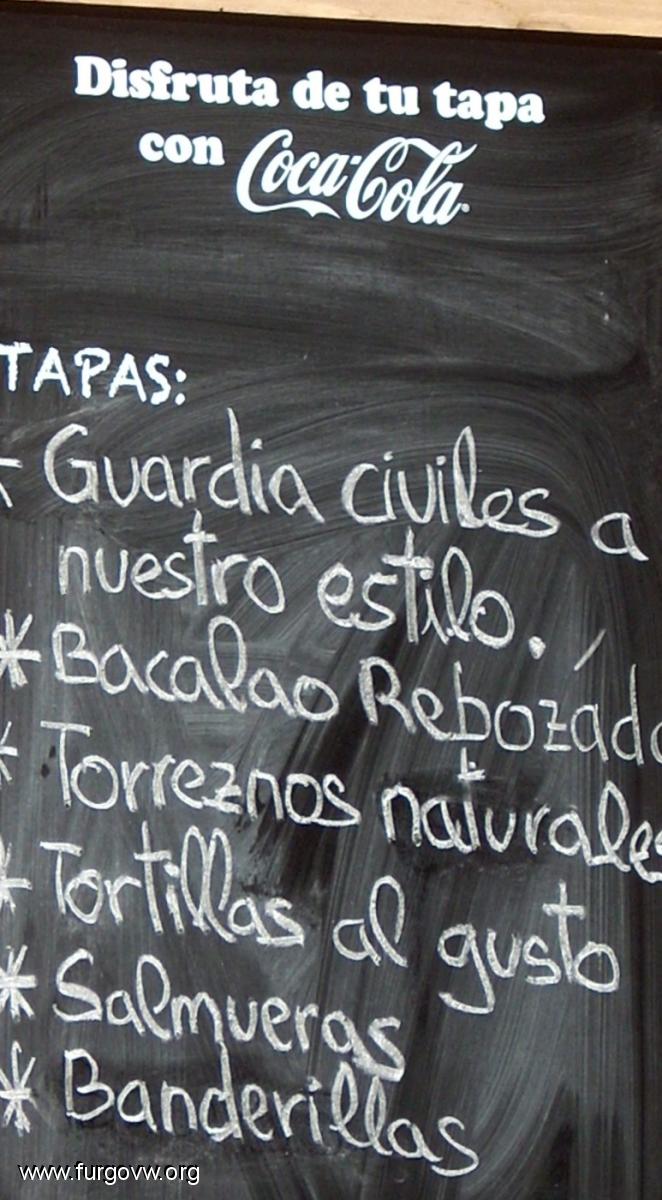 Disfruta de tu tapa
con Coca-Cola
TAPAS:
Guardia civiles a
nuestro estilo.
* Bacalao Rebozádo
* Torreznos naturales
* Tortillas al gusto
* Salmueras
* Banderillas
www.furgovw.org